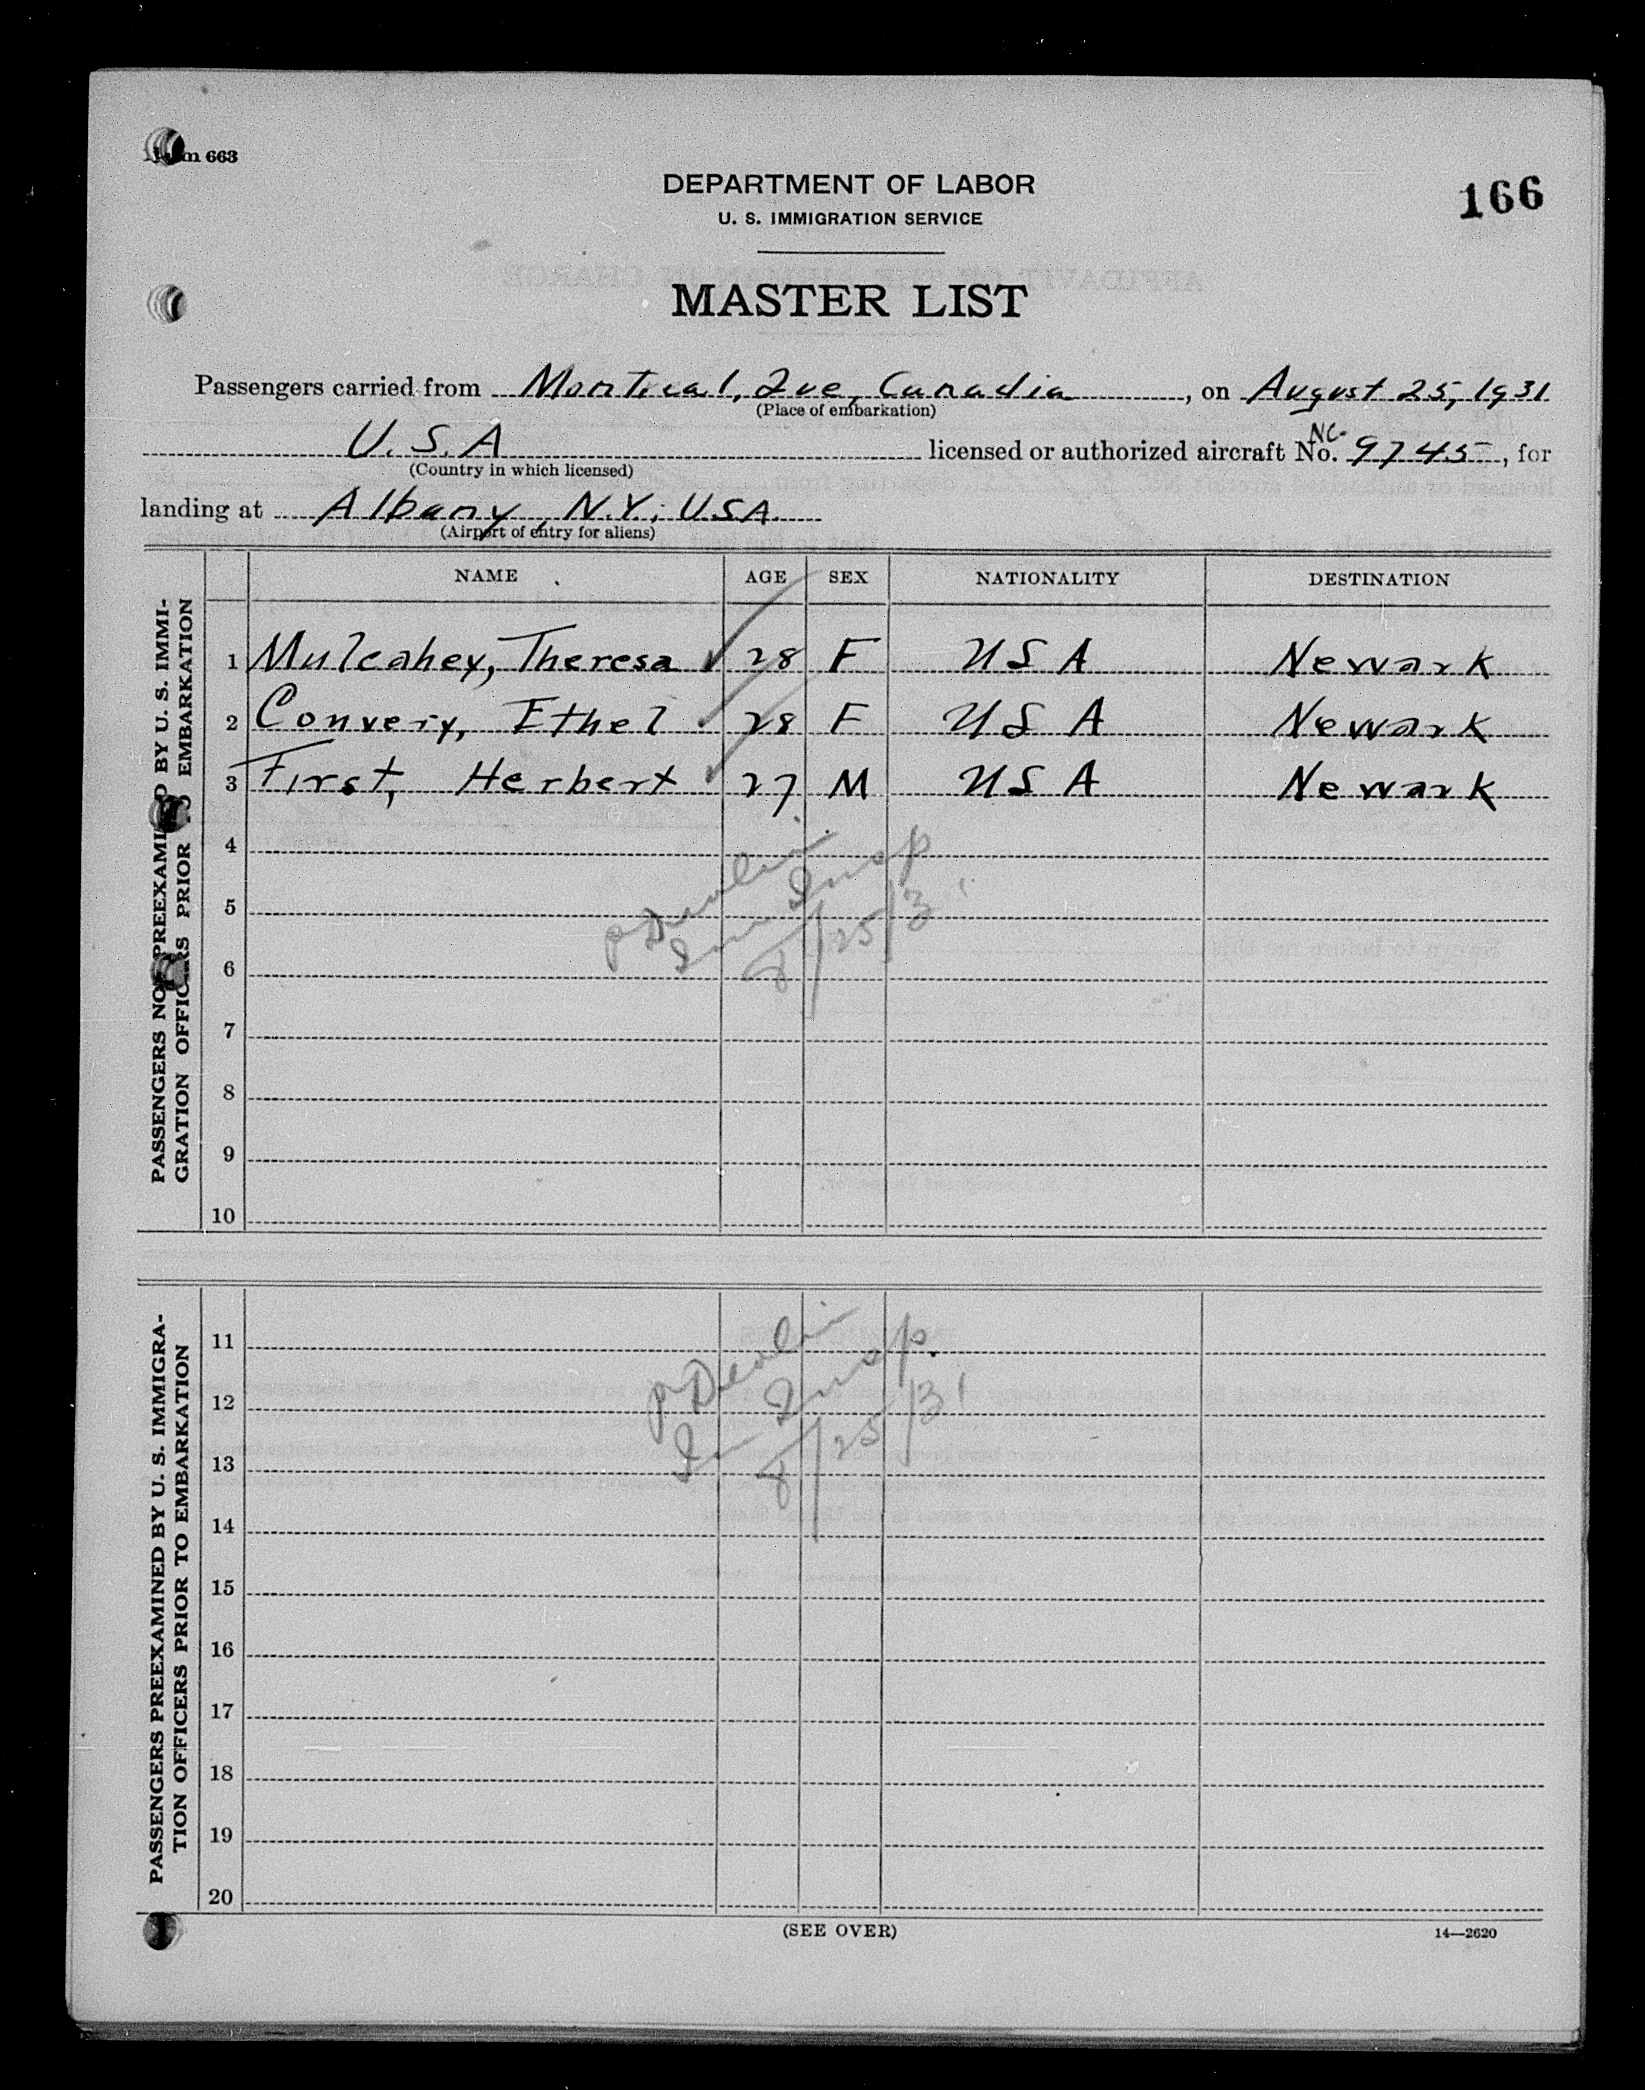 Form 663
DEPARTMENT OF LABOR
U. S. IMMIGRATION SERVICE
166
MASTER LIST
Passengers carried from Montreal, Que, Canadia, on August 25, 1931
(Place of embarkation)
U.S.A licensed or authorized aircraft No. NC-9745, for
(Country in which licensed)
landing at Albany, N.Y., USA.
(Airport of entry for aliens)
NAME AGE SEX NATIONALITY DESTINATION
PASSENGERS NOT PREEXAMINED BY U. S. IMMI-
GRATION OFFICERS PRIOR TO EMBARKATION
1 Mulcahey, Theresa ✓ 28 F USA Newark
2 Convery, Ethel ✓ 28 F USA Newark
3 First, Herbert ✓ 27 M USA Newark
4
5
6
7
8
9
10
P Devlin
Imm Insp
8/25/31
PASSENGERS PREEXAMINED BY U. S. IMMIGRA-
TION OFFICERS PRIOR TO EMBARKATION
11
12
13
14
15
16
17
18
19
20
P Devlin
Im Insp.
8/25/31
(SEE OVER)
14—2620